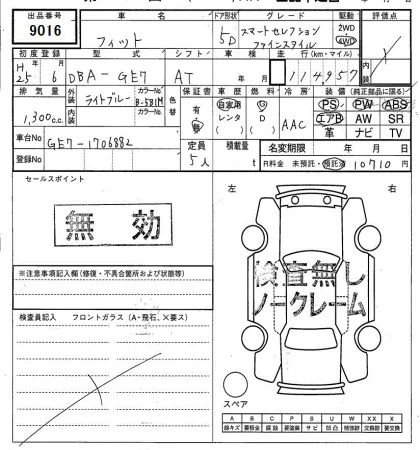 出品番号 車名 ドア形状 グレード 駆動 評価点
9016 フィット 5D スマートセレクション ファインスタイル 2WD 4WD
初度登録 型式 シフト 車検 走行(km・マイル) 装備(純正部品に限る)
H25年 6月 DBA-GE7 AT 年 月 114957 PS PW ABS
排気量 外装 カラーNo 色替 保証書 車歴 燃料 冷房 エアB AW SR
1,300c.c. ライトブルー B-581M 有 無 自家用 レンタ G D AAC 革 ナビ TV
内装 カラーNo
車台No GE7-1706882 定員 積載量 名変期限 年 月 日
登録No 5人 t R料金 未預託・預託済 10710円
セールスポイント 左 右
無効
検査無し
ノークレーム
※注意事項記入欄(修復・不具合箇所および状態等)
検査員記入 フロントガラス(A・飛石、×要ス)
スペア
A B C P S U W XX X
線キズ 要板金 腐蝕 要塗装 サビ 凹凸 補修跡 交換跡 要交換